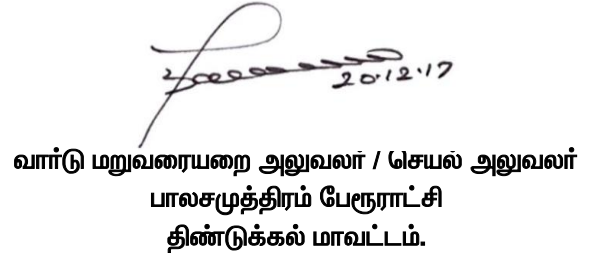 20.12.17
வார்டு மறுவரையறை அலுவலர் / செயல் அலுவலர்
பாலசமுத்திரம் பேரூராட்சி
திண்டுக்கல் மாவட்டம்.